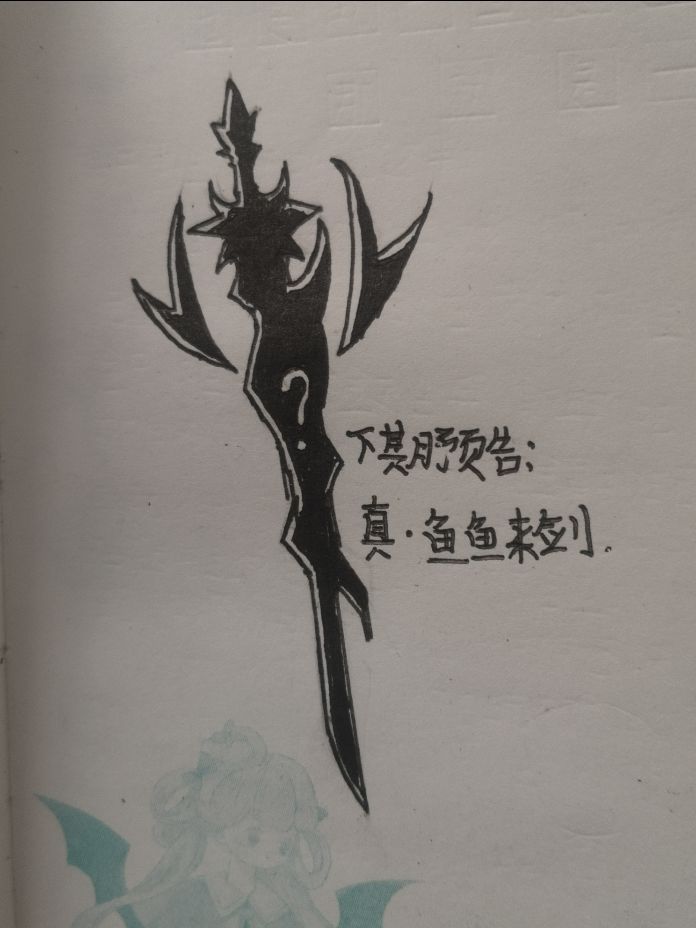 ?
下期预告:
真·鱼鱼来剑.